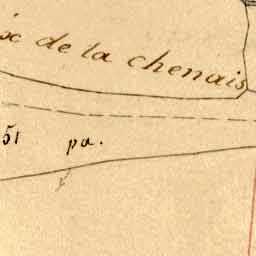 de la chenais
51 pa.